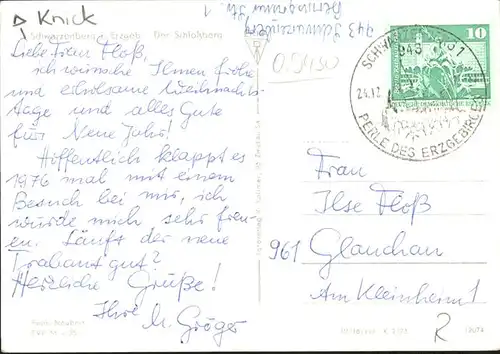 Knick
Schwarzenberg / Erzgeb. Der Schloßberg
Liebe Frau Floß,
ich wünsche Ihnen frohe
und erholsame Weihnachts
tage und alles Gute
für Neue Jahr!
Hoffentlich klappt es
1976 mal mit einem
Besuch bei mir, ich
würde mich sehr freu-
en. Läuft der neue
Trabant gut?
Herzliche Grüße!
Ihre M. Gröger
943 Schwarzenberg
Str. 1
10
SCHWARZENBERG 1
943
PERLE DES ERZGEBIRGES
Frau
Ilse Floß
961 Glauchau
Am Kleinheim 1
R